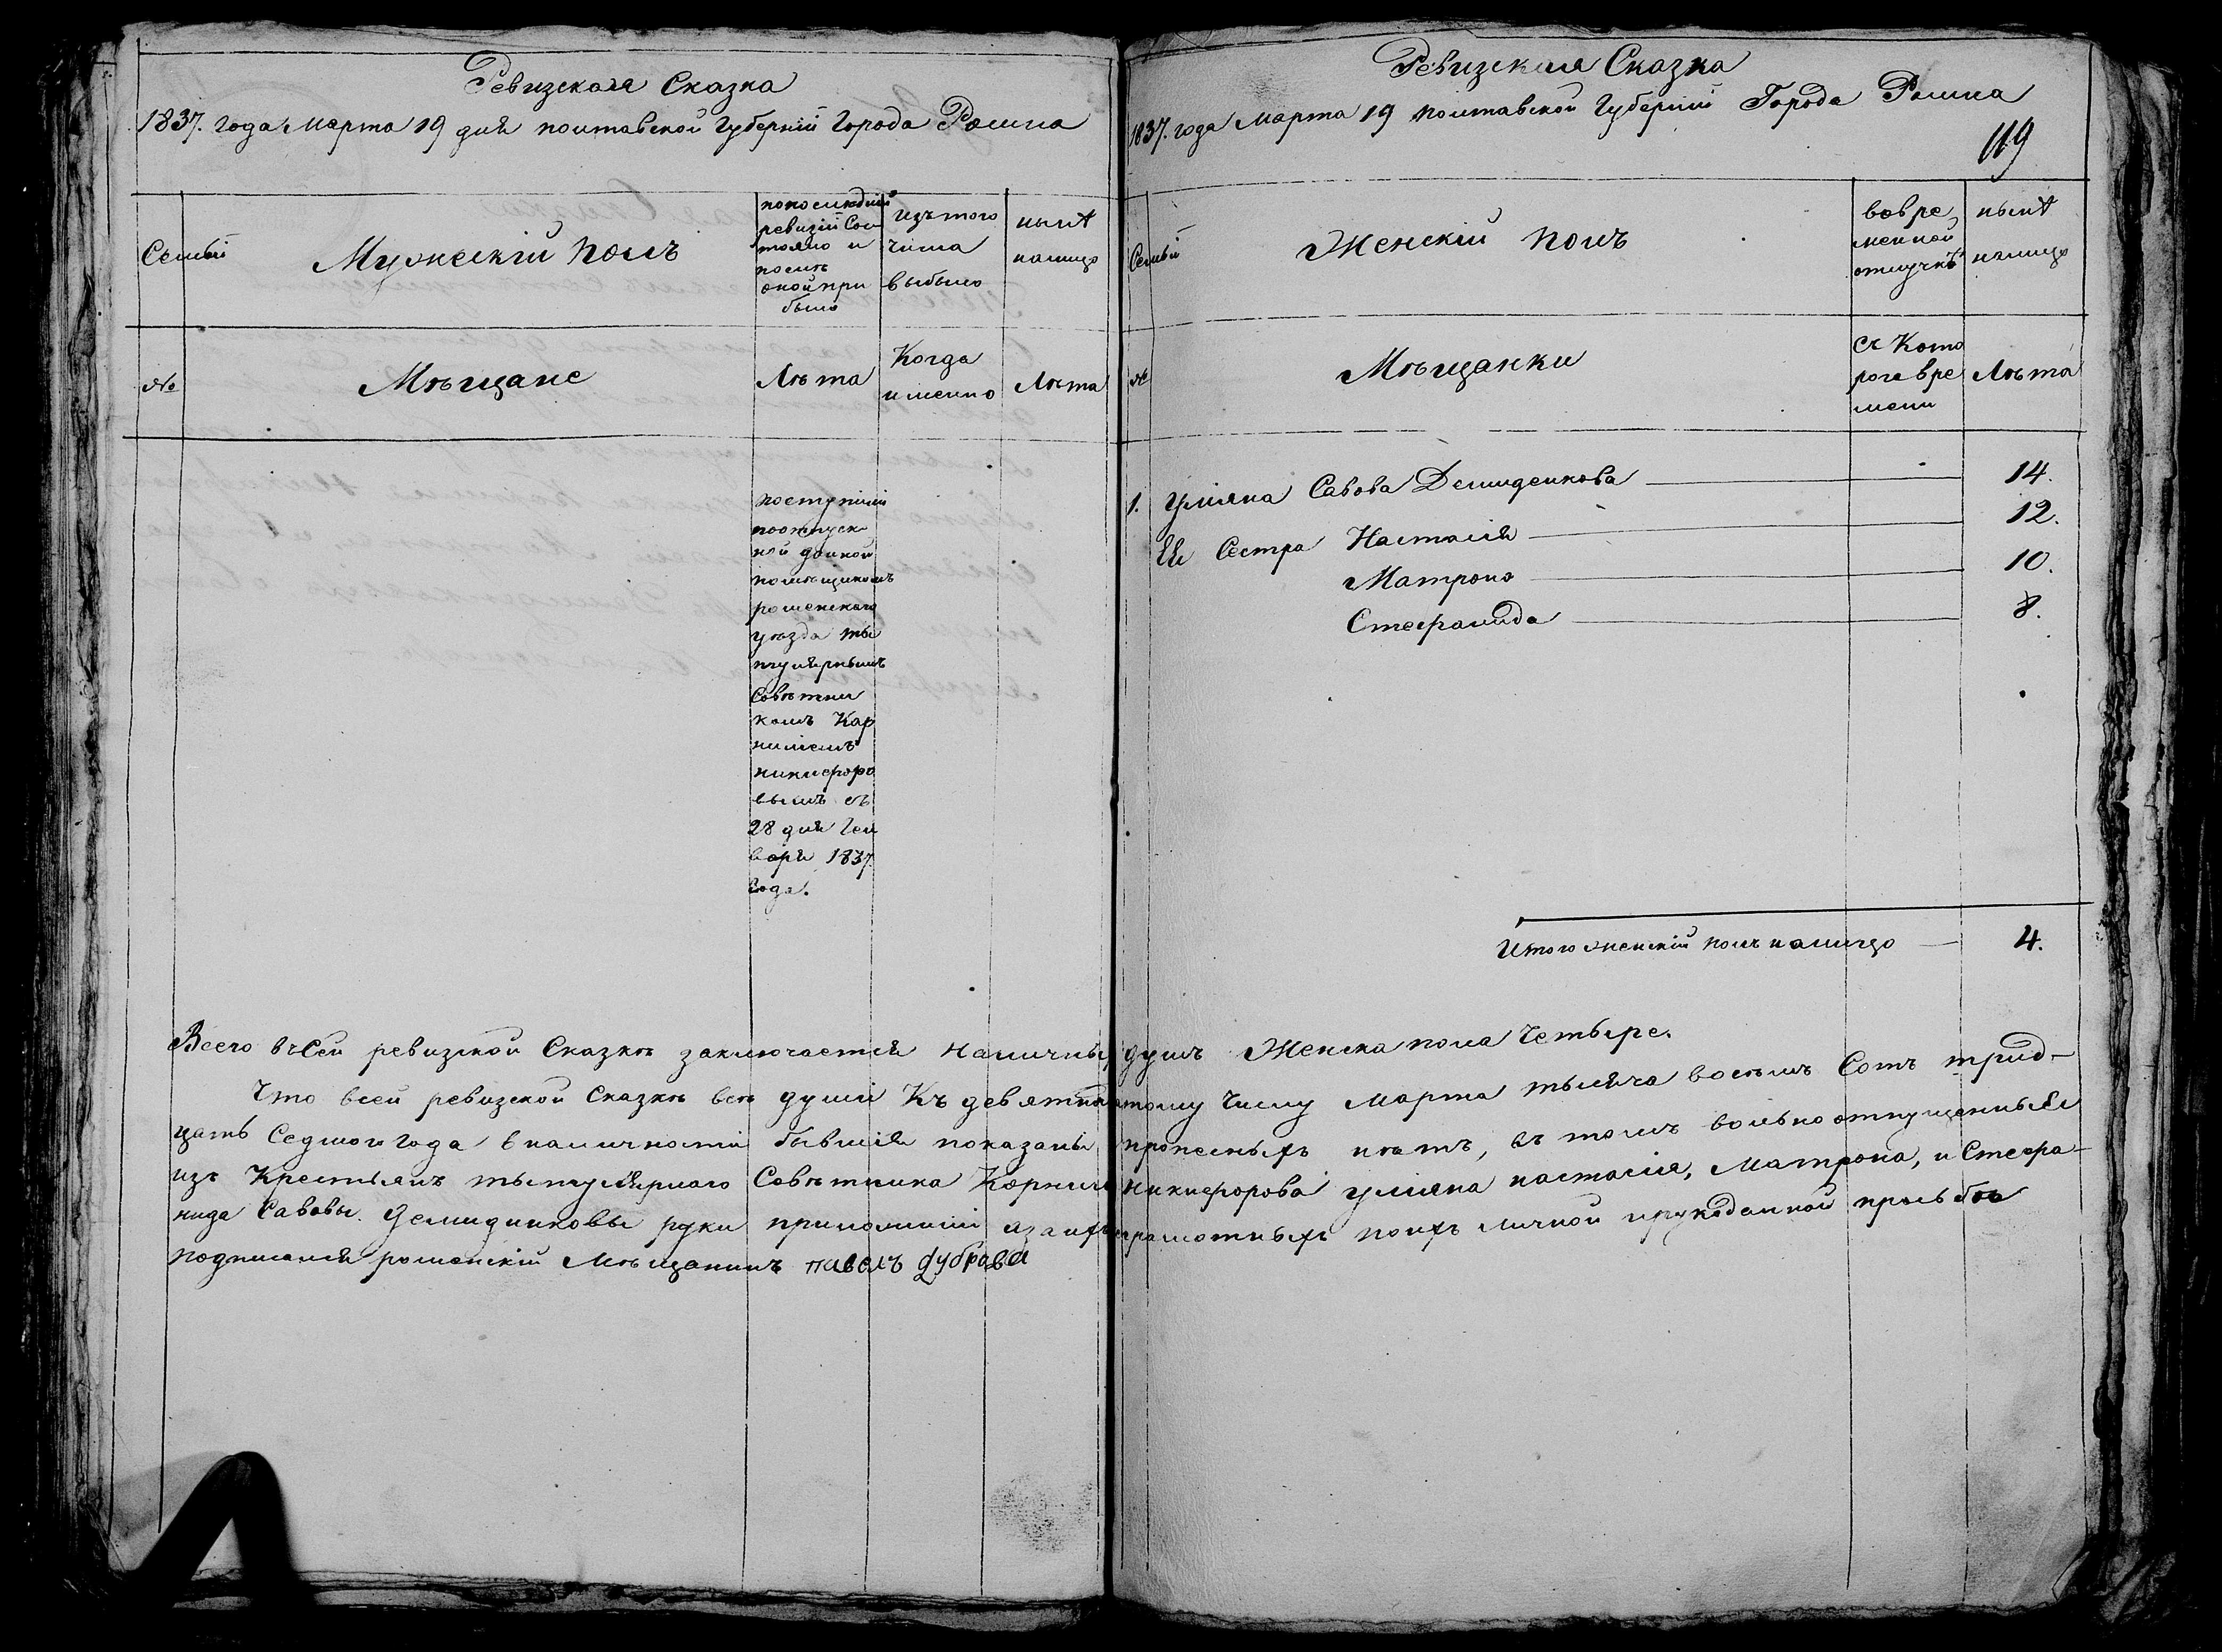 Ревизская Сказка
1837. года Марта 19 дня полтавской Губерніи Города Ромна
Семьи
Мужескій полъ
попоследней
ревизіи Сос
тояло и
послѣ
оной при
было
изътого
числа
выбыло
нынѣ
налицо
№
Мѣщане
Лѣта
Когда
именно
Лѣта
поступили
поотпуск
ной данной
помѣщикомъ
роменского
уѣзда ти
тулярнымъ
Совѣтни
комъ Кор
нилиемъ
никифоро
вымъ съ
28 дня Ген
варя 1837.
Года.
Ревизская Сказка
1837. года Марта 19 полтавской Губерніи Города Ромна
119
Семьи
Женскій полъ
вовре
менной
отлучкѣ
нынѣ
налицо
№
Мѣщанки
съ Кото
рого вре
мени
Лѣта
1. Уліяна Савова Демиденкова 14.
Ея Сестра Настасія 12.
Матрона 10.
Стефанида 8.
Итого женскій полъ налицо 4.
Всего въсей ревизской Сказкѣ заключается Наличныхъ душъ Женска пола Четыре.
Что всей ревизской Сказкѣ всѣ души Къ девятнадцатому Числу Марта тысяча восемъ Сотъ трид-
цать Седмого Года вналичности бывшія показаны, прописныхъ нѣтъ, въ томъ вольноотпущенныя
изъ Крестьянъ титулярного Совѣтника Корнилия никифорова уліяна настасія, Матрона, и Стефа-
нида Савовы Демиденковы руки приложили азаихъ неграмотныхъ поихъ личной ирукоданной прозьбѣ
подписался роменскій Мѣщанинъ павелъ дуброва